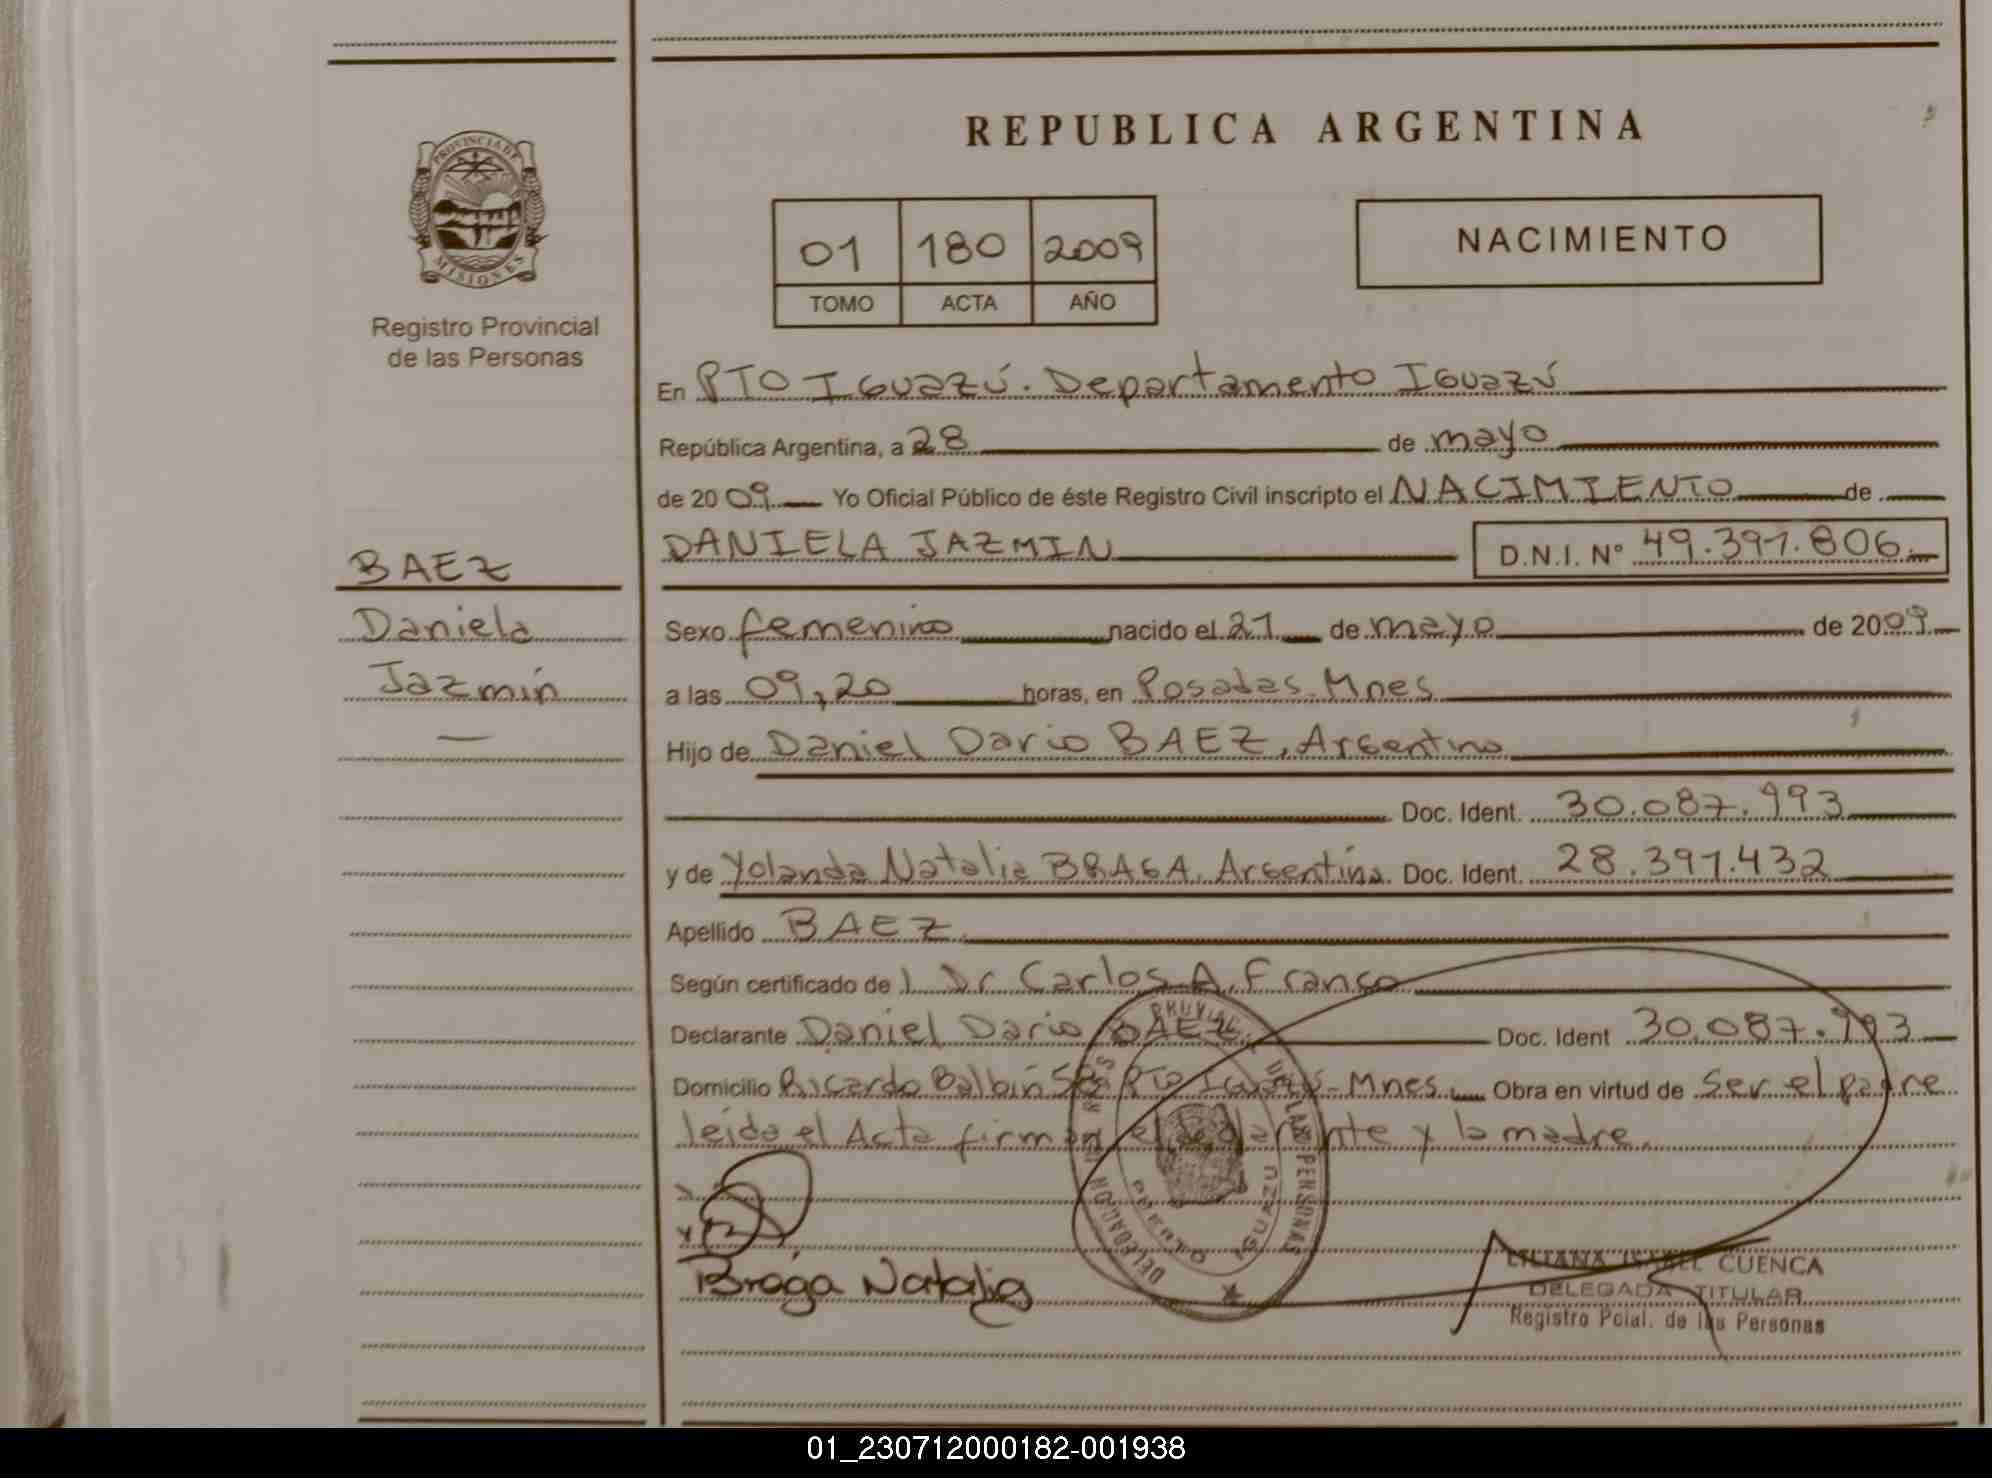 REPUBLICA ARGENTINA
PROVINCIA DE
MISIONES
Registro Provincial
de las Personas
01 180 2009
TOMO ACTA AÑO
NACIMIENTO
En PTO IGUAZÚ. Departamento IGUAZÚ
República Argentina, a 28 de mayo
de 2009 Yo Oficial Público de éste Registro Civil inscripto el NACIMIENTO de
BAEZ
Daniela
Jazmín
DANIELA JAZMIN D.N.I. N° 49.391.806.
Sexo femenino nacido el 21 de mayo de 2009
a las 09,20 horas, en Posadas. Mnes
Hijo de Daniel Dario BAEZ, Argentino
Doc. Ident. 30.087.993
y de Yolanda Natalia BRAGA. Argentina. Doc. Ident. 28.391.432
Apellido BAEZ
Según certificado de Dr Carlos A. Franco
Declarante Daniel Dario BAEZ Doc. Ident 30.087.993
Domicilio Ricardo Balbín PTO Iguazú - Mnes. Obra en virtud de Ser el padre
leída el Acta firman el declarante y la madre.
Braga Natalia
DELEGACION
DE LAS PERSONAS
IGUAZU
LILIANA ISABEL CUENCA
DELEGADA TITULAR
Registro Pcial. de las Personas
01_230712000182-001938